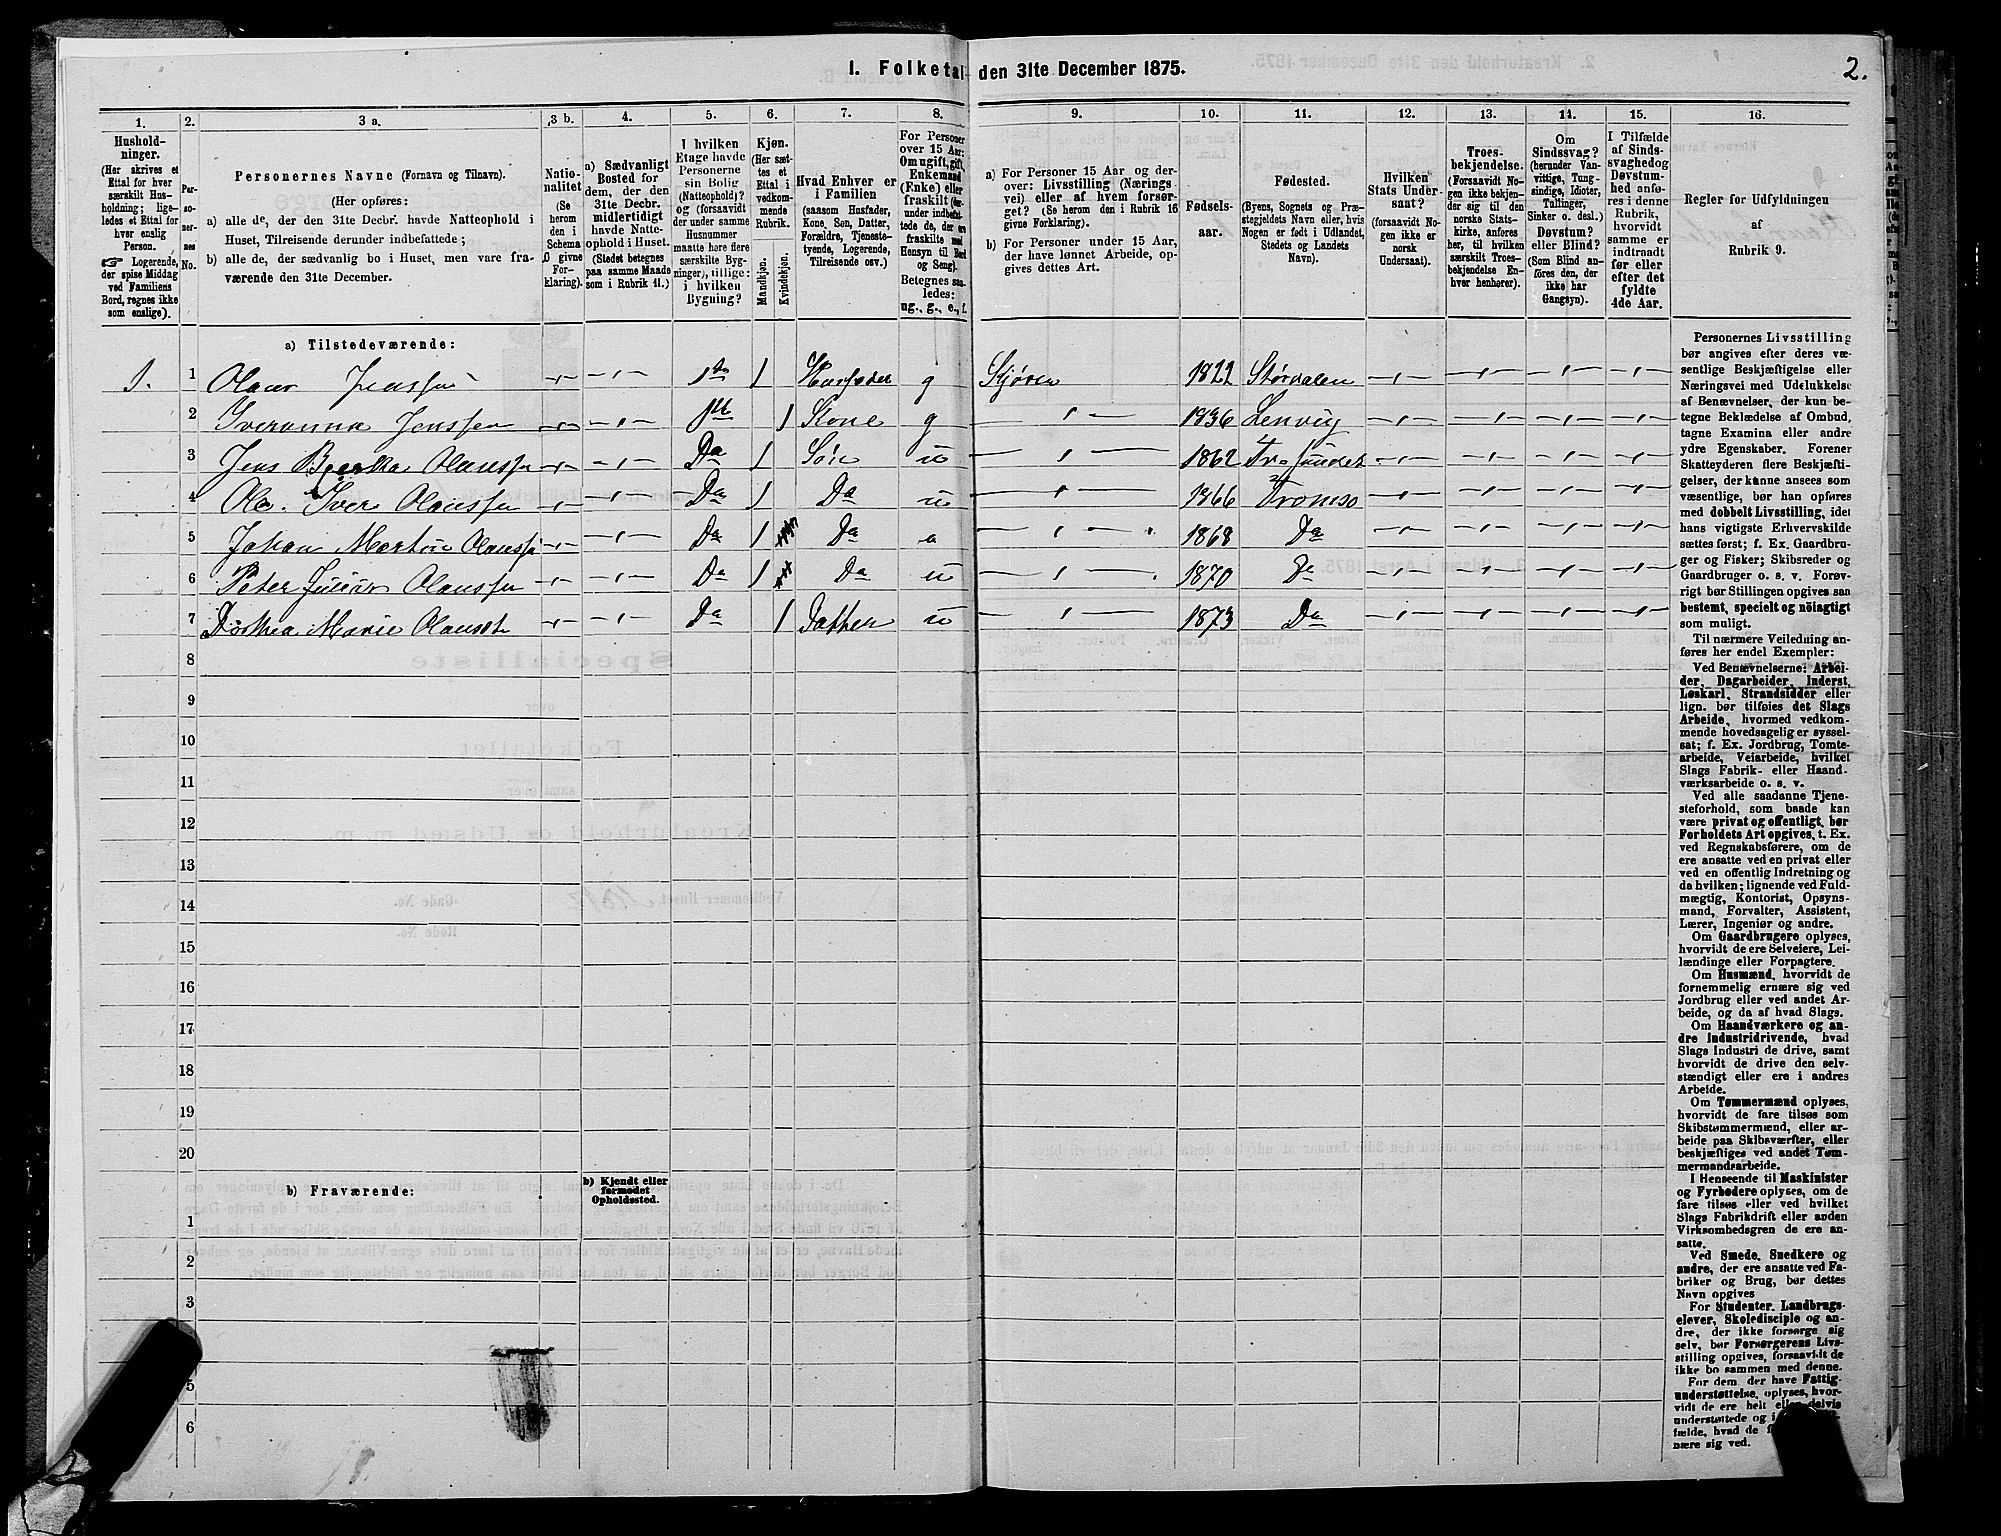 1. Folketal den 31te December 1875.
2.
1.
Hushold-
ninger.
(Her skrives et
Ettal for hver
særskilt Hus-
holdning; lige-
ledes et Ettal for
hver enslig
Person.
☞ Logerende,
der spise Middag
ved Familiens
Bord, regnes ikke
som enslige).
2.
Per-
so-
ner-
nes
No.
3 a.
Personernes Navne (Fornavn og Tilnavn).
(Her opføres:
a) alle de, der den 31te Decbr. havde Natteophold i
Huset, Tilreisende derunder indbefattede;
b) alle de, der sædvanlig bo i Huset, men vare fra-
værende den 31te December.
3 b.
Natio-
nalitet
(Se
herom
den i
Schema
C givne
For-
klaring).
4.
a) Sædvanligt
Bosted for
dem, der den
31te Decbr.
midlertidigt
havde Natte-
ophold i Huset.
(Stedet betegnes
paa samme Maade
som i Rubrik 11.)
5.
I hvilken
Etage havde
Personerne
sin Bolig
(Natteophold)?
og (forsaavidt
der under samme
Husnummer
maatte høre flere
særskilte Byg-
ninger), tillige:
i hvilken
Bygning?
6.
Kjøn.
(Her sæt-
tes et
Ettal i
vedkom-
mende
Rubrik.
Mandkjøn.
Kvindekjøn.
7.
Hvad Enhver er
i Familien
(saasom Husfader,
Kone, Søn, Datter,
Forældre, Tjeneste-
tyende, Logerende,
Tilreisende osv.)
8.
For Personer
over 15 Aar:
Om ugift, gift,
Enkemand
(Enke) eller
fraskilt
Hensyn til Bord
og Seng).
Betegnes saa-
ledes:
ug., g., e., f.
9.
a) For Personer 15 Aar og der-
over: Livsstilling (Nærings-
vei) eller af hvem forsør-
get? (Se herom den i Rubrik 16
givne Forklaring).
b) For Personer under 15 Aar,
der have lønnet Arbeide, op-
gives dettes Art.
10.
Fødsels-
aar.
11.
Fødested.
(Byens, Sognets og Præ-
stegjeldets Navn eller, hvis
Nogen er født i Udlandet,
Stedets og Landets
Navn).
12.
Hvilken
Stats Under-
saat?
(forsaavidt No-
gen ikke er
norsk
Undersaat).
13.
Troes-
bekjendelse.
(Forsaavidt No-
gen ikke bekjen-
der sig til den
norske Stats-
kirke, anføres
her, til hvilken
særskilt Troes-
bekjendelse En-
hver henhører).
14.
Om
Sindssvag?
(herunder Van-
vittige, Tung-
sindige, Idioter,
Tullinger,
Sinker o. desl.)
Døvstum?
eller Blind?
(Som Blind an-
føres den, der
ikke har
Gangsyn).
15.
I Tilfælde
af Sinds-
svaghed og
Døvstum-
hed anfø-
res i denne
Rubrik,
hvorvidt
samme er
indtraadt
før eller
efter det
fyldte
4de Aar.
16.
Regler for Udfyldningen
af
Rubrik 9.
a) Tilstedeværende:
1. 1 Olaus Jenssen 1ste 1 Husfader g Skjøren 1822 Størdalen
2 Iveranna Jenssen 1te 1 Kone g 1836 Lenvig
3 Jens Olaussen Da 1 Søn u 1862
4 Ole Iver Olaussen Da 1 Da u 1866 Tromsø
5 Johan Martin Olaussen Da 1 Da u 1868 Da
6 Peter Junior Olaussen Da 1 Da u 1870 Da
7 Dorthea Marie Olausdt Da 1 Datter u 1873 Da
8
9
10
11
12
13
14
15
16
17
18
19
20
b) Fraværende:
b) Kjendt eller
formodet
Opholdssted.
1
2
3
5
6
Personernes Livsstilling
bør angives efter deres væ-
sentlige Beskjæftigelse eller
Næringsvei med Udelukkelse
af Benævnelser, der kun be-
tegne Beklædelse af Ombud,
tagne Examina eller andre
ydre Egenskaber. Forener
Skatteyderen flere Beskjæfti-
gelser, der kunne ansees som
væsentlige, bør han opføres
med dobbelt Livsstilling, idet
hans vigtigste Erhvervskilde
sættes først; f. Ex. Gaardbru-
ger og Fisker; Skibsreder og
Gaardbruger o. s. v. Forøv-
rigt bør Stillingen opgives saa
bestemt, specielt og nöiagtigt
som muligt.
Til nærmere Veiledning an-
føres her endel Exempler:
Ved Benævnelserne: Arbei-
der, Dagarbeider, Inderst,
Løskarl, Strandsidder eller
lign. bør tilføies det Slags
Arbeide, hvormed vedkom-
mende hovedsagelig er syssel-
sat; f. Ex. Jordbrug, Tomte-
arbeide, Veiarbeide, hvilket
Slags Fabrik- eller Haand-
værksarbeide o. s. v.
Ved alle saadanne Tjene-
steforhold, som baade kan
være privat og offentligt, bør
Forholdets Art opgives, t. Ex.
ved Regnskabsførere, om de
ere ansatte ved en privat eller
ved en offentlig Indretning og
da hvilken; lignende ved Fuld-
mægtig, Kontorist, Opsyns-
mand, Forvalter, Assistent,
Lærer, Ingeniør og andre.
Om Gaardbrugere oplyses,
hvorvidt de ere Selveiere, Lei-
lændinge eller Forpagtere.
Om Husmænd, hvorvidt de
fornemmelig ernære sig ved
Jordbrug eller ved andet Ar-
beide, og da af hvad Slags.
Om Haandværkere og an-
dre Industridrivende, hvad
Slags Industri de drive, samt
hvorvidt de drive den selv-
stændigt eller ere i andres
Arbeide.
Om Tømmermænd oplyses,
hvorvidt de fare tilsøs som
Skibstømmermænd, eller ar-
beide paa Skibsværfter, eller
beskjæftiges ved andet Tøm-
mermandsarbeide.
I Henseende til Maskinister
og Fyrbødere oplyses, om de
fare tilsøs eller ved hvilket
Slags Fabrikdrift eller anden
Virksomhedsgren de ere an-
satte.
Ved Smede, Snedkere og
andre, der ere ansatte ved Fa-
briker og Brug, bør dettes
Navn opgives
For Studenter, Landbrugs-
elever, Skoledisciple og an-
dre, der ikke forsørge sig
selv, bør Forsørgerens Livs-
stilling opgives, forsaavidt de
ikke bo sammen med denne.
For dem, der have Fattig-
understøttelse, oplyses, hvor-
vidt de ere helt eller delvis
understøttede og i
fælde, hvad de
nære sig ved.